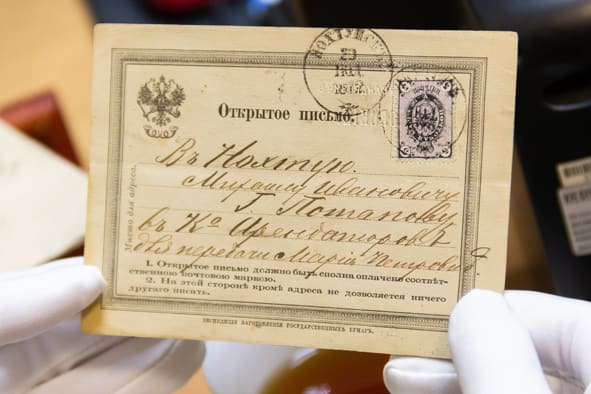 НОХТУЙСК
Открытое письмо.
Въ Нохтую
Михаилу Ивановичу
Г. Потапову
въ Ко
для передачи Маріи Петровнѣ
Мѣсто для адреса.
1. Открытое письмо должно быть сполна оплачено соотвѣт-
ственною почтовою маркою.
2. На этой сторонѣ кромѣ адреса не дозволяется ничего
другаго писать.
ЭКСПЕДИЦІЯ ЗАГОТОВЛЕНІЯ ГОСУДАРСТВЕННЫХЪ БУМАГЪ.